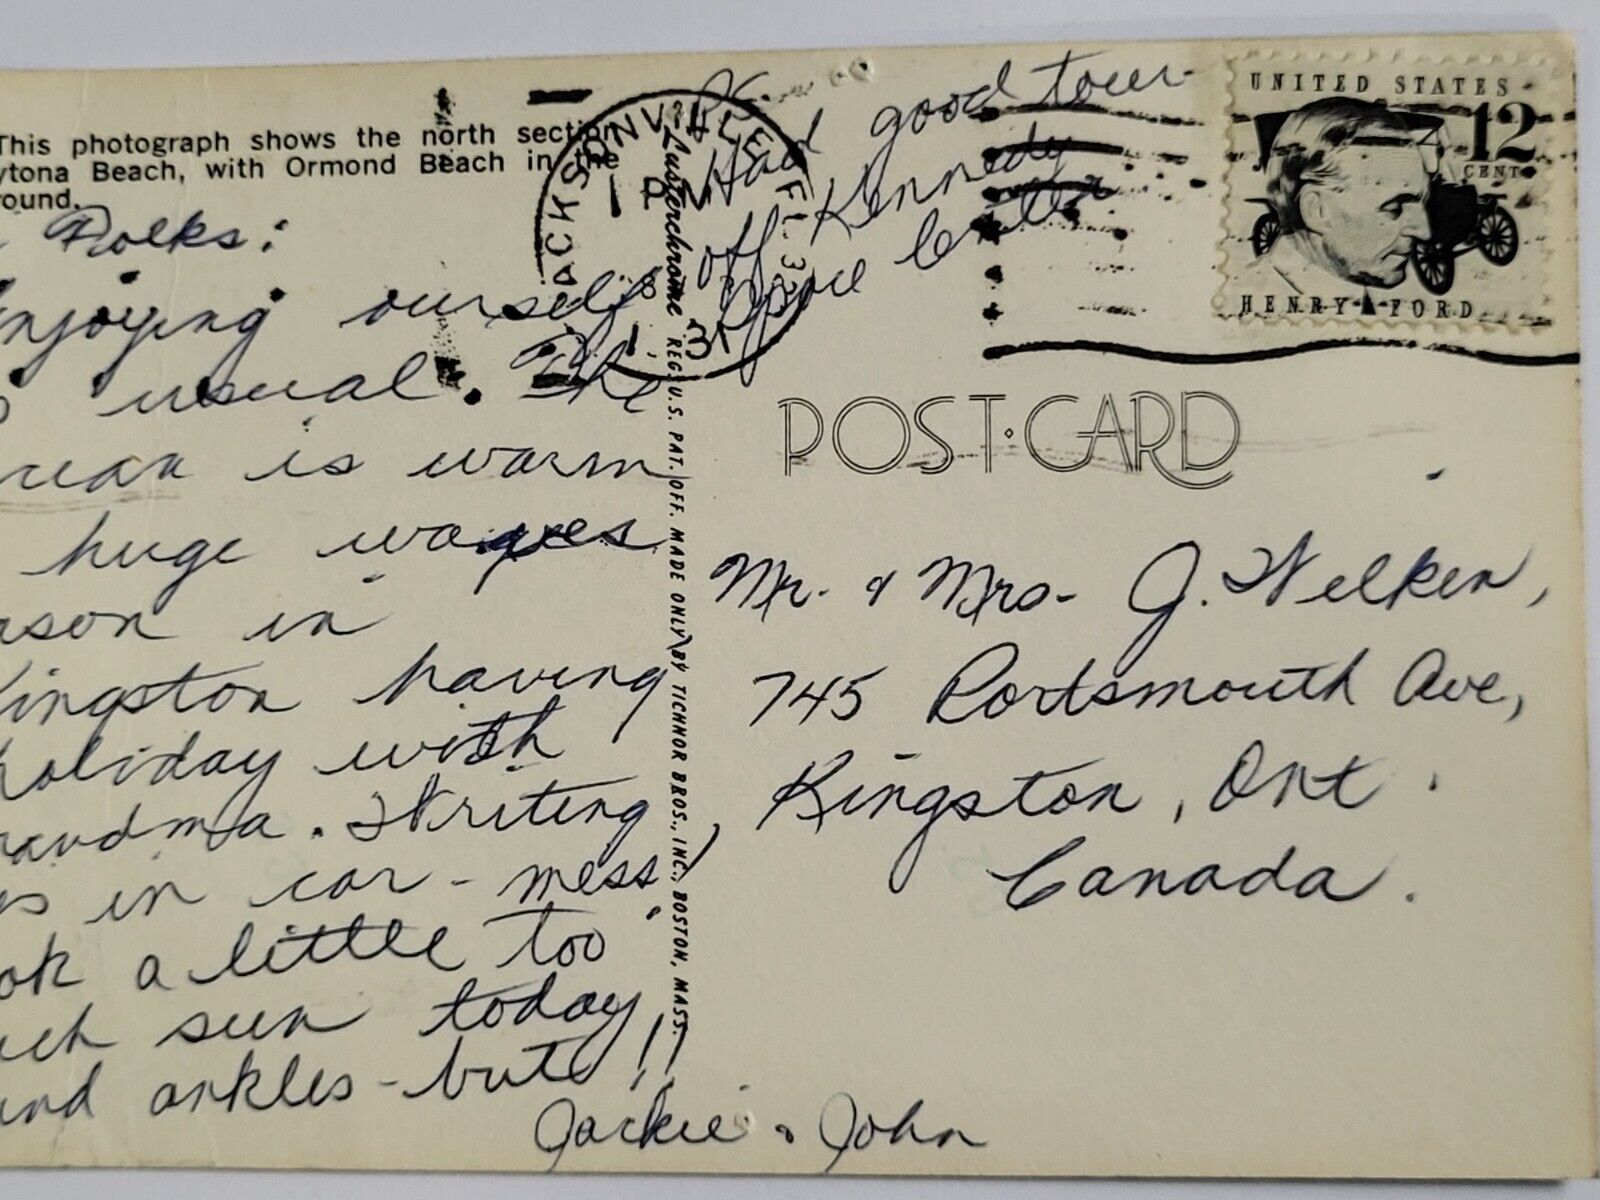 This photograph shows the north section
ytona Beach, with Ormond Beach in the
ound.
Folks:
njoying ourself
usual. The
is warm
huge waves
ason in
Kingston having
holiday with
randma. Writing
is in car - mess
ok a little too
uch sun today,
and ankles - but !!
Jackie & John
PS.
Had good tour
off Kennedy
Space Center
JACKSONVILLE FL 32
PM
Lusterchrome REG. U.S. PAT. OFF. MADE ONLY BY TICHNOR BROS., INC., BOSTON, MASS.
UNITED STATES
12
CENTS
HENRY FORD
POST CARD
Mr. & Mrs. J. Welken,
745 Portsmouth Ave,
Kingston, Ont.
Canada.